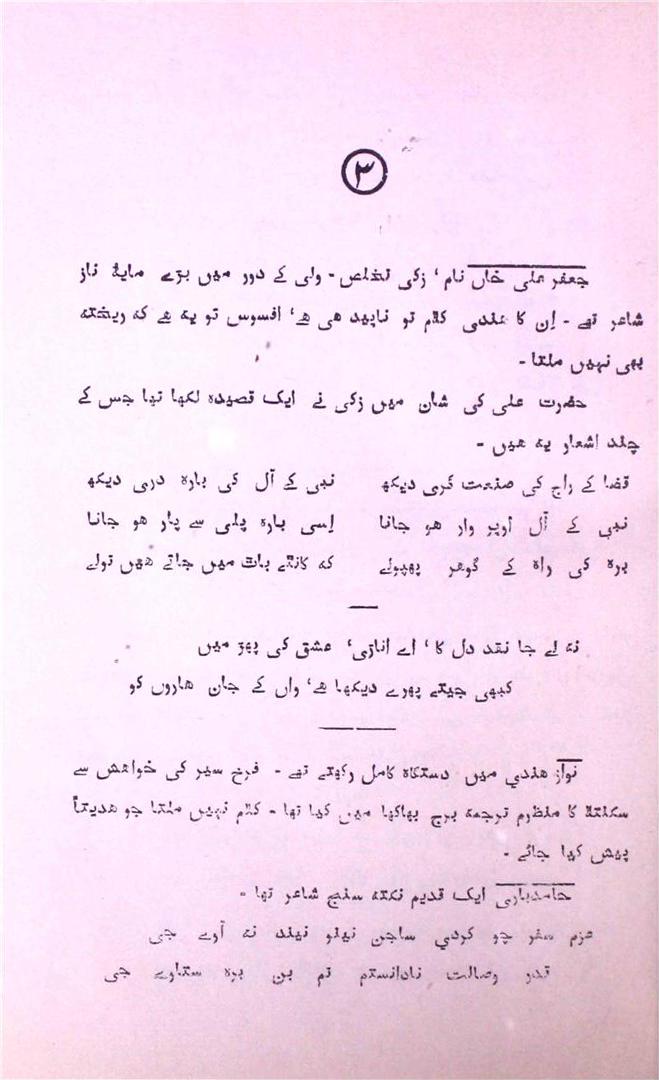 ۳
جعفر علی خاں نام ' زکی تخلص - ولی کے دور میں بڑے مایۂ ناز
شاعر تھے - اِن کا ہندی کلام تو ناپید ھی ھے ' افسوس تو یہ ھے کہ ریختہ
بھی نہیں ملتا -
حضرت علی کی شان میں زکی نے ایک قصیدہ لکھا تھا جس کے
چند اشعار یہ ھیں -
قضا کے راج کی صنعت گری دیکھ نبی کے آل کی بارہ دری دیکھ
نبی کے آل اوپر وار ھو جانا اِسی بارہ پلی سے پار ھو جانا
برہ کی راہ کے گوھر پھپولے کہ کانٹے باٹ میں جاتے ھیں تولے
نہ لے جا نقد دل کا ' اے اناڑی ' عشق کی پھڑ میں
کبھی جیتے پھرے دیکھا ھے ' واں کے جان ھاروں کو
نواز ھندی میں دستگاہ کامل رکھتے تھے - فرخ سیر کی خواھش سے
سکنتلا کا منظوم ترجمہ برج بھاکھا میں کیا تھا - کلام نہیں ملتا جو ھدیتاً
پیش کیا جائے -
حامدباری ایک قدیم نکتہ سنج شاعر تھا -
عزم سفر چو کردی ساجن نینو نیند نہ آوے جی
قدر وصالت نادانستم تم بن برہ ستاوے جی